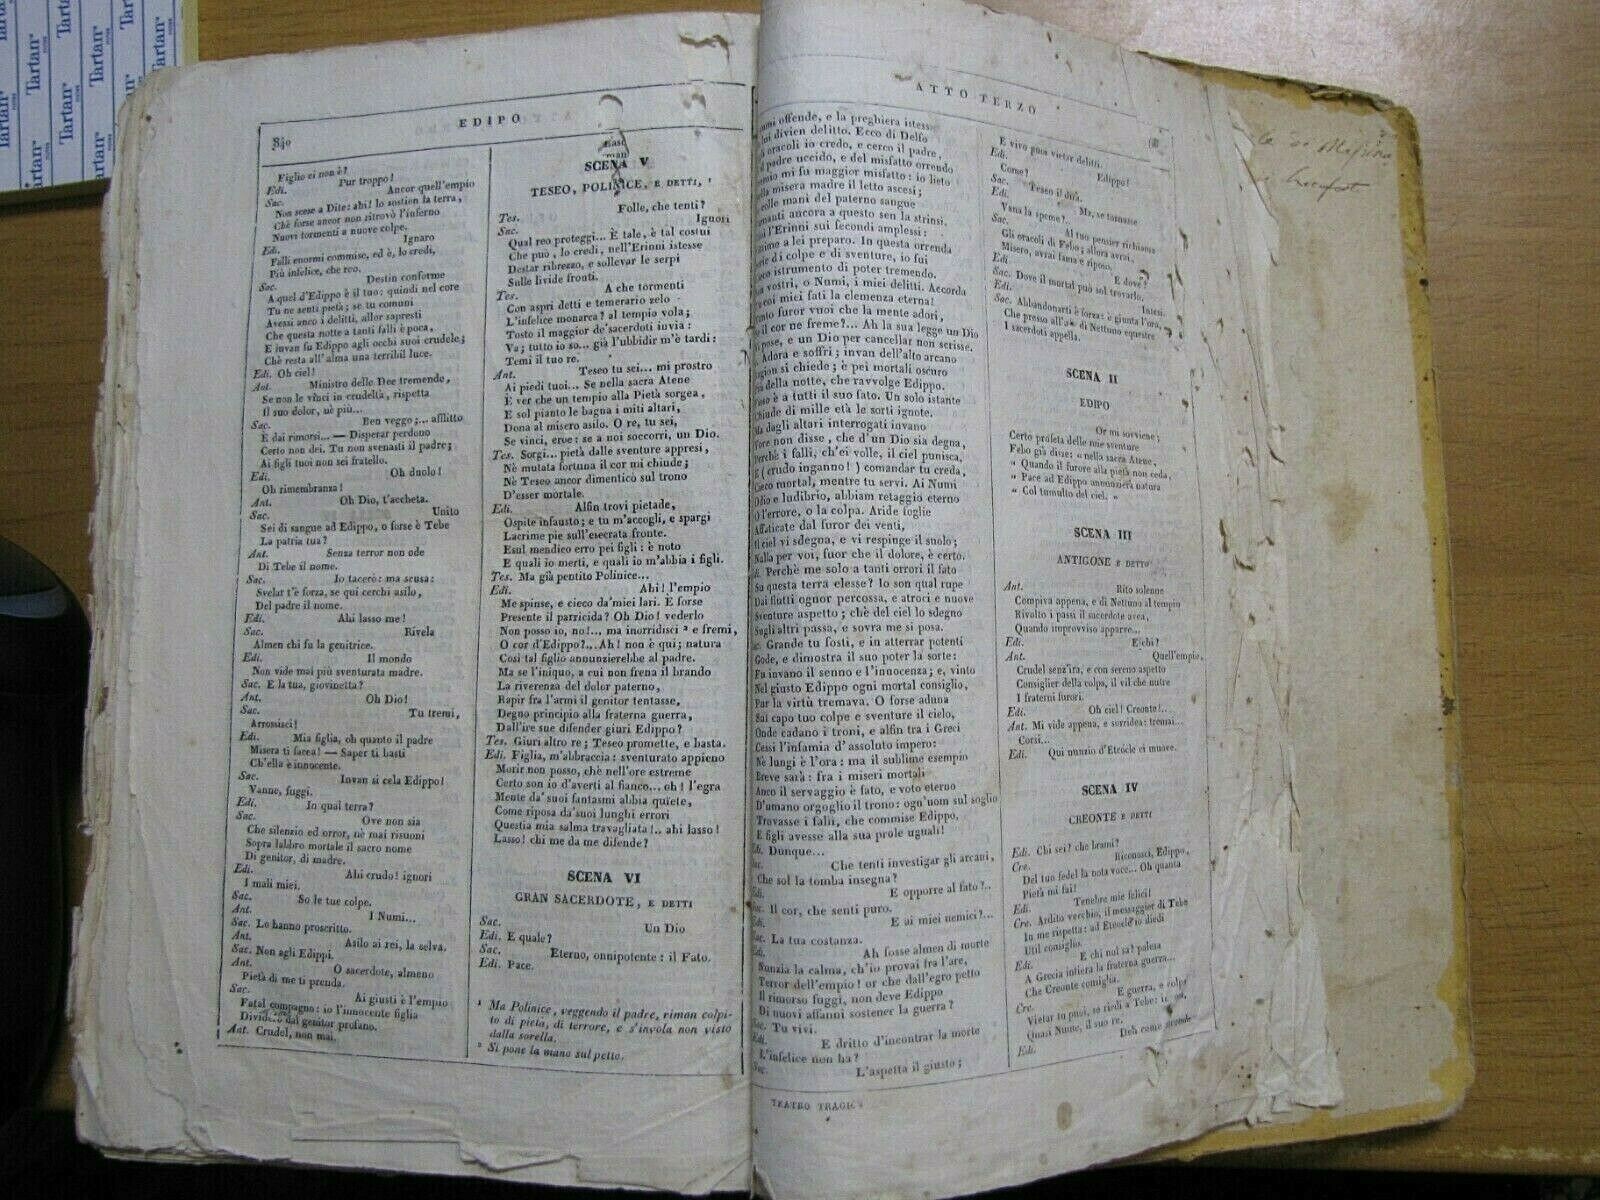 Tartan
Tartan
Tartan
Tartan
Tartan
Tartan
EDIPO
840
Figlio ei non è?
Edi. Pur troppo!
Sac. Ancor quell'empio
Non scese a Dite: ahi! lo sostien la terra,
Chè forse ancor non ritrovò l'inferno
Nuovi tormenti a nuove colpe.
Edi. Ignaro
Falli enormi commise, ed è, lo credi,
Più infelice, che reo.
Sac. Destin conforme
A quel d'Edippo è il tuo: quindi nel core
Tu ne senti pietà; se tu comuni
Avessi anco i delitti, allor sapresti
Che questa notte a tanti falli è poca,
E invan fu Edippo agli occhi suoi crudele;
Chè resta all'alma una terribil luce.
Edi. Oh ciel!
Ant. Ministro delle Dee tremende,
Se non le vinci in crudeltà, rispetta
Il suo dolor, nè più...
Sac. Ben veggo;... afflitto
È dai rimorsi... — Disperar perdono
Certo non dei. Tu non svenasti il padre;
Ai figli tuoi non sei fratello.
Edi. Oh duolo!
Oh rimembranza!
Ant. Oh Dio, t'accheta.
Sac. Unito
Sei di sangue ad Edippo, o forse è Tebe
La patria tua?
Ant. Senza terror non ode
Di Tebe il nome.
Sac. Io tacerò: ma scusa:
Svelar t'è forza, se qui cerchi asilo,
Del padre il nome.
Edi. Ahi lasso me!
Sac. Rivela
Almen chi fu la genitrice.
Edi. Il mondo
Non vide mai più sventurata madre.
Sac. E la tua, giovinetta?
Ant. Oh Dio!
Sac. Tu tremi,
Arrossisci!
Edi. Mia figlia, oh quanto il padre
Misera ti facea! — Saper ti basti
Ch'ella è innocente.
Sac. Invan si cela Edippo!
Vanne, fuggi.
Edi. In qual terra?
Sac. Ove non sia
Che silenzio ed orror, nè mai risuoni
Sopra labbro mortale il sacro nome
Di genitor, di madre.
Edi. Ahi crudo! ignori
I mali miei.
Sac. So le tue colpe.
Ant. I Numi...
Sac. Lo hanno proscritto.
Ant. Asilo ai rei, la selva.
Sac. Non agli Edippi.
Ant. O sacerdote, almeno
Pietà di me ti prenda.
Sac. Ai giusti è l'empio
Fatal compagno: io l'innocente figlia
Divido dal genitor profano.
Ant. Crudel, non mai.
SCENA V
TESEO, POLINICE, E DETTI, ¹
Tes. Folle, che tenti?
Sac. Ignori
Qual reo proteggi... È tale, è tal costui
Che può, lo credi, nell'Erinni istesse
Destar ribrezzo, e sollevar le serpi
Sulle livide fronti.
Tes. A che tormenti
Con aspri detti e temerario zelo
L'infelice monarca? al tempio vola;
Tosto il maggior de'sacerdoti invia:
Va; tutto io so... già l'ubbidir m'è tardi:
Temi il tuo re.
Ant. Teseo tu sei... mi prostro
Ai piedi tuoi... Se nella sacra Atene
È ver che un tempio alla Pietà sorgea,
E sol pianto le bagna i miti altari,
Dona al misero asilo. O re, tu sei,
Se vinci, eroe: se a noi soccorri, un Dio.
Tes. Sorgi... pietà dalle sventure appresi,
Nè mutata fortuna il cor mi chiude;
Nè Teseo ancor dimentico sul trono
D'esser mortale.
Edi. Alfin trovi pietade,
Ospite infausto; e tu m'accogli, e spargi
Lacrime pie sull'esecrata fronte.
Esul mendico erro pei figli: è noto
E quali io merti, e quali io m'abbia i figli.
Tes. Ma già pentito Polinice...
Edi. Ahi! l'empio
Me spinse, e cieco da'miei lari. E forse
Presente il parricida? Oh Dio! vederlo
Non posso io, no!... ma inorridisci ² e fremi,
O cor d'Edippo?... Ah! non è qui; natura
Così tal figlio annunzierebbe al padre.
Ma se l'iniquo, a cui non frena il brando
La riverenza del dolor paterno,
Rapir fra l'armi il genitor tentasse,
Degno principio alla fraterna guerra,
Dall'ire sue difender giuri Edippo?
Tes. Giuri altro re; Teseo promette, e basta.
Edi. Figlia, m'abbraccia: sventurato appieno
Morir non posso, chè nell'ore estreme
Certo son io d'averti al fianco... oh! l'egra
Mente da' suoi fantasmi abbia quiete,
Come riposa da'suoi lunghi errori
Questa mia salma travagliata!.. ahi lasso!
Lasso! chi me da me difende?
SCENA VI
GRAN SACERDOTE, E DETTI
Sac. Un Dio
Edi. E quale?
Sac. Eterno, onnipotente: il Fato.
Edi. Pace.
¹ Ma Polinice, veggendo il padre, riman colpi-
to di pietà, di terrore, e s'invola non visto
dalla sorella.
² Si pone la mano sul petto.
ATTO TERZO
offende, e la preghiera istess
divien delitto. Ecco di Delfo
oracoli io credo, e cerco il padre,
padre uccido, e del misfatto orrendo
mi fu maggior misfatto: io lieto
misera madre il letto ascesi;
colle mani del paterno sangue
ancora a questo sen la strinsi.
l'Erinni sui fecondi amplessi:
a lei preparo. In questa orrenda
di colpe e di sventure, io fui
istrumento di poter tremendo.
vostri, o Numi, i miei delitti. Accorda
miei fati la clemenza eterna!
furor vuoi che la mente adori,
il cor ne freme?... Ah la sua legge un Dio
pose, e un Dio per cancellar non scrisse.
Adora e soffri; invan dell'alto arcano
si chiede; è pei mortali oscuro
della notte, che ravvolge Edippo.
è a tutti il suo fato. Un solo istante
Chiude di mille età le sorti ignote.
Ma dagli altari interrogati invano
non disse, che d'un Dio sia degna,
Perchè i falli, ch'ei volle, il ciel punisca,
E (crudo inganno!) comandar tu creda,
Cieco mortal, mentre tu servi. Ai Numi
Odio e ludibrio, abbiam retaggio eterno
O l'errore, o la colpa. Aride foglie
Affaticate dal furor dei venti,
Il ciel vi sdegna, e vi respinge il suolo;
Nulla per voi, fuor che il dolore, è certo.
Perchè me solo a tanti orrori il fato
Su questa terra elesse? Io son qual rupe
Dai flutti ognor percossa, e atroci e nuove
Sventure aspetto; chè del ciel lo sdegno
Sugli altri passa, e sovra me si posa.
Grande tu fosti, e in atterrar potenti
Gode, e dimostra il suo poter la sorte:
Fu invano il senno e l'innocenza; e, vinto
Nel giusto Edippo ogni mortal consiglio,
Par la virtù tremava. O forse aduna
Sul capo tuo colpe e sventure il cielo,
Onde cadano i troni, e alfin tra i Greci
Cessi l'infamia d'assoluto impero:
Nè lungi è l'ora: ma il sublime esempio
Breve sarà: fra i miseri mortali
Anco il servaggio è fato, e voto eterno
D'umano orgoglio il trono: ogn'uom sul soglio
Trovasse i falli, che commise Edippo,
E figli avesse alla sua prole uguali!
Dunque...
Che tenti investigar gli arcani,
Che sol la tomba insegna?
E opporre al fato?..
Il cor, che senti puro.
E ai miei nemici?...
La tua costanza.
Ah fosse almen di morte
Nunzia la calma, ch'io provai fra l'are,
Terror dell'empio! or che dall'egro petto
Il rimorso fuggì, non deve Edippo
Di nuovi affanni sostener la guerra?
Tu vivi.
E dritto d'incontrar la morte
L'infelice non ha?
L'aspetta il giusto;
TEATRO TRAGIC
E vivo puoi vietar delitti.
Edi. Edippo!
Come?
Sac. Teseo il difa.
Edi. Ma, se tornasse
Vana la speme?..
Sac. Al tuo pensier richiama
Gli oracoli di Febo; allora avrai,
Misero, avrai fama e riposo.
Edi. E dove?
Sac. Dove il mortal può sol trovarlo.
Edi. Intesi.
Sac. Abbandonarti è forza: è giunta l'ora,
Che presso all'a di Nettuno equestre
I sacerdoti appella.
SCENA II
EDIPO
Or mi sovviene;
Certo profeta delle mie sventure
Febo già disse: « nella sacra Atene,
« Quando il furore alla pietà non ceda,
« Pace ad Edippo annunzierà natura
« Col tumulto del ciel. »
SCENA III
ANTIGONE E DETTO
Ant. Rito solenne
Compiva appena, e di Nettuno al tempio
Rivolto i passi il sacerdote avea,
Quando improvviso apparve...
Edi. E chi?
Ant. Quell'empio,
Crudel senz'ira, e con sereno aspetto
Consiglier della colpa, il vil che nutre
I fraterni furori.
Edi. Oh ciel! Creonte!..
Ant. Mi vide appena, e sorridea: tremai...
Corsi...
Edi. Qui nunzio d'Eteòcle ei muove.
SCENA IV
CREONTE E DETTI
Edi. Chi sei? che brami?
Cre. Riconosci, Edippo,
Del tuo fedel la nota voce... Oh quanta
Pietà mi fai!
Edi. Tenebre mie felici!
Cre. Ardito vecchio, il messaggier di Tebe
In me rispetta: ad Eteòcle io diedi
Util consiglio.
Edi. E chi nol sa? palesa
A Grecia intiera la fraterna guerra...
Che Creonte consiglia.
Cre. E guerra, e colpe
Vietar tu puoi, se riedi a Tebe:
Quasi Nume, il suo re.
Edi. Deh come